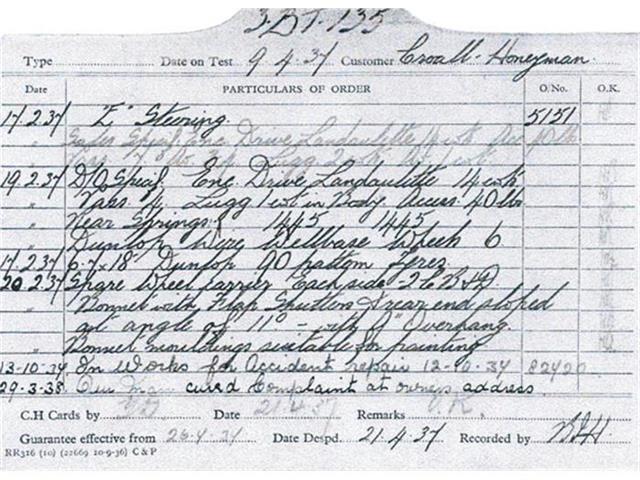 3-BT-135
Type Date on Test 9.4.37 Customer Croall-Honeyman.
Date PARTICULARS OF ORDER O/No. O.K.
17.2.37 "E" Steering. 5151
" Spcif. Enc. Drive Landaulette 14 cwt. 40 lb
" Lugg
19.2.37 D/O Specif. Enc. Drive Landaulette 14 cwt.
" Pass. 7/4 Lugg 1 cwt in Body. Access. 40 lbs
" Near Springs. F 1445 1445
" Dunlop Wire Wellbase Wheels 6
17.2.37 6.7 x 18" Dunlop 90 pattern Tyres.
20.2.37 Spare Wheel carrier Each side - 26 B & D
" Bonnet with Flap Shutters & rear end sloped
at angle of 11° - with 9" Overhang.
Bonnet mouldings suitable for painting
13-10-37 In Works for Accident repair 12-10-37 82420
29-3-38 Our man cured Complaint at owners address
C.H Cards by Date 21.4.37 Remarks O.K.
Guarantee effective from 26-4-37 Date Despd. 21.4.37 Recorded by
RR316 (10) (22669 10-9-36) C & P